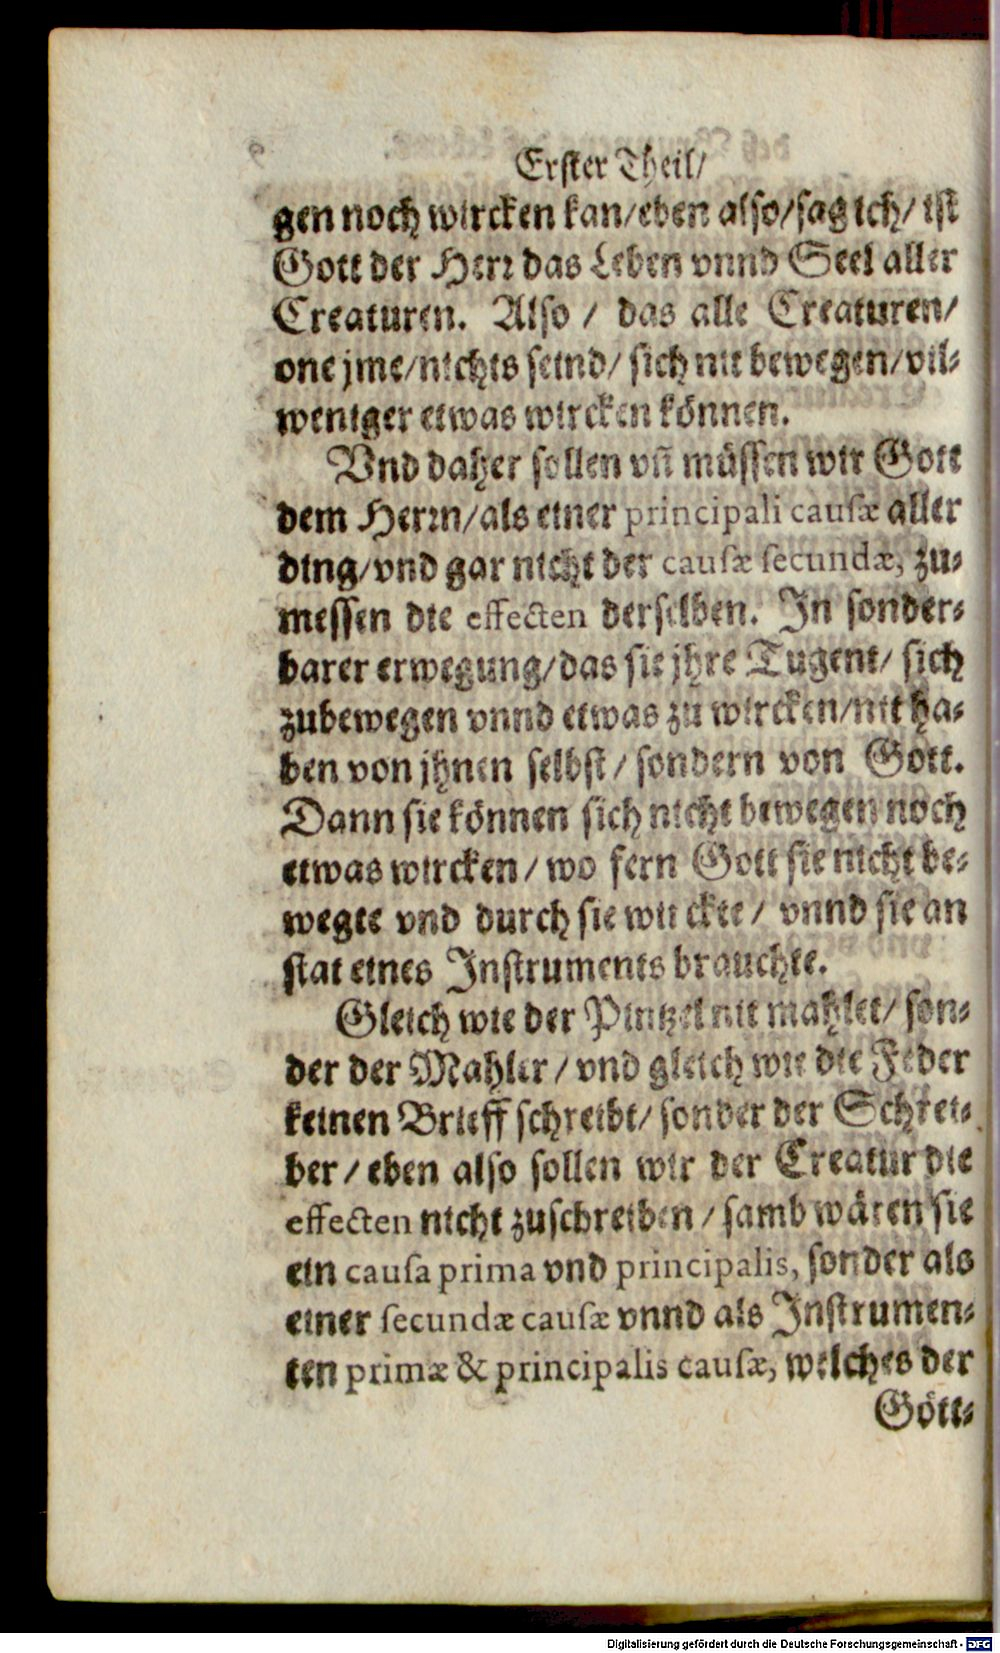 Erster Theil/
gen noch wircken kan/eben also/sag ich/ ist
Gott der Herr das Leben vnnd Seel aller
Creaturen. Also / das alle Creaturen/
one jme/nichts seind/ sich nit bewegen/ vil-
weniger etwas wircken können.
Vnd daher sollen vñ müssen wir Gott
dem Herrn/als einer principali causæ aller
ding/vnd gar nicht der causæ secundæ, zu-
messen die effecten derselben. In sonder-
barer erwegung/das sie jhre Tugent/ sich
zubewegen vnnd etwas zu wircken/nit ha-
ben von jhnen selbst/ sondern von Gott.
Dann sie können sich nicht bewegen noch
etwas wircken/ wo fern Gott sie nicht be-
wegte vnd durch sie wirckte/ vnnd sie an
stat eines Instruments brauchte.
Gleich wie der Pintzel nit mahlet/ son-
der der Mahler/ vnd gleich wie die Feder
keinen Brieff schreibt/ sonder der Schrei-
ber/ eben also sollen wir der Creatur die
effecten nicht zuschreiben/ samb wären sie
ein causa prima vnd principalis, sonder als
einer secundæ causæ vnnd als Instrumen-
ten primæ & principalis causæ, welches der
Gött-
Digitalisierung gefördert durch die Deutsche Forschungsgemeinschaft - DFG